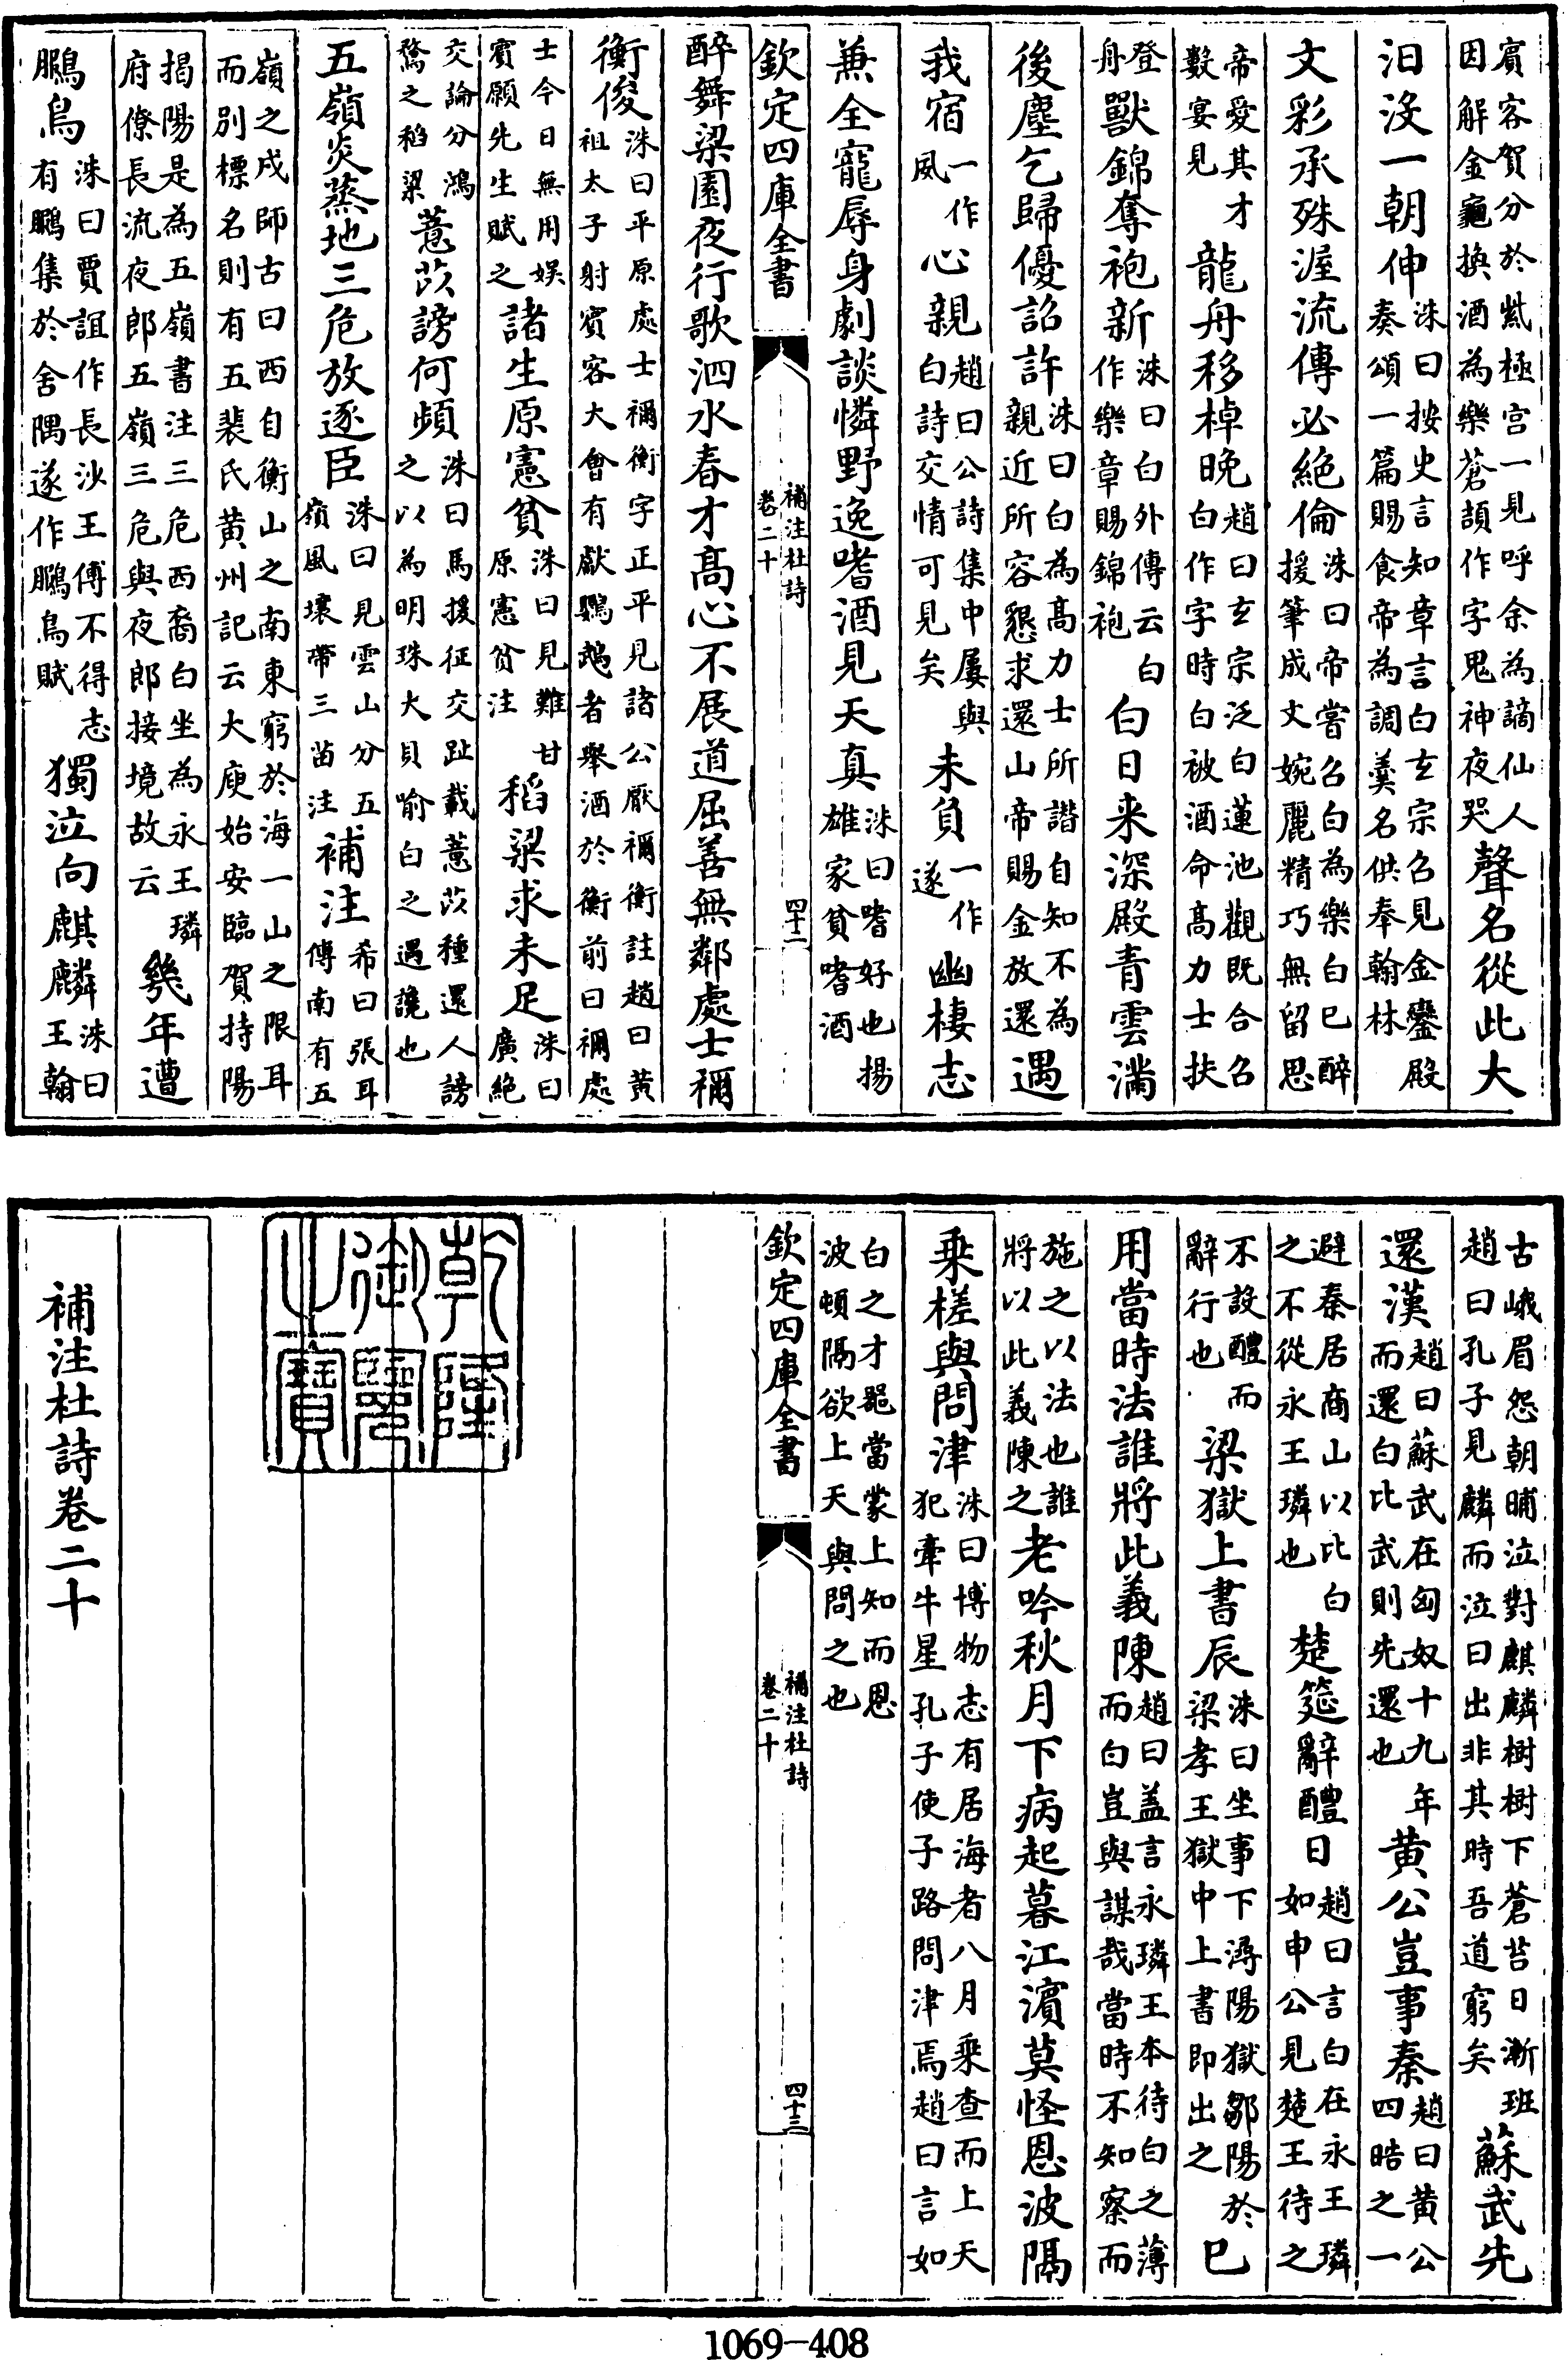 賔客賀分於紫極宫一見呼余為謫仙人因解金龜換酒為樂蒼頡作字鬼神夜哭聲名從此大
汨沒一朝伸洙曰按史言知章言白玄宗召見金鑾殿奏頌一篇賜食帝為調羮名供奉翰林
文彩承殊渥流傳必絶倫洙曰帝嘗召白為樂白已醉援筆成文婉麗精巧無留思
帝愛其才數宴見龍舟移棹晚趙曰玄宗泛白蓮池觀既合召白作字時白被酒命髙力士扶
登舟獸錦奪袍新洙曰白外傳云白作樂章賜錦袍白日来深殿青雲滿
後塵乞歸優詔許洙曰白為髙力士所譖自知不為親近所容懇求還山帝賜金放還遇
我宿一作風心親趙曰公詩集中屢與白詩交情可見矣未負一作遂幽棲志
兼全寵辱身劇談憐野逸嗜酒見天真洙曰嗜好也揚雄家貧嗜酒
欽定四庫全書 補注杜詩卷二十 四十二
醉舞梁園夜行歌泗水春才髙心不展道屈善無鄰處士禰
衡俊洙曰平原處士禰衡字正平見諸公厭禰衡註趙曰黄祖太子射賔客大會有獻鸚鵡者舉酒於衡前曰禰處
士今日無用娱賔願先生賦之諸生原憲貧洙曰見難甘原憲貧注稻粱求未足洙曰廣絶
交論分鴻鶩之稻粱薏苡謗何頻洙曰馬援征交趾載薏苡種還人謗之以為明珠大貝喻白之遇讒也
五嶺炎蒸地三危放逐臣洙曰見雲山分五嶺風壤帶三苗注補注希曰張耳傳南有五
嶺之戍師古曰西自衡山之南東窮於海一山之限耳而别標名則有五裴氏黄州記云大庾始安臨賀持陽
揭陽是為五嶺書注三危西裔白坐為永王璘府僚長流夜郎五嶺三危與夜郎接境故云幾年遭
鵩鳥洙曰賈誼作長沙王傅不得志有鵩集於舍隅遂作鵩鳥賦獨泣向麒麟洙曰王翰
古峨眉怨朝晡泣對麒麟樹樹下蒼苔日漸班趙曰孔子見麟而泣曰出非其時吾道窮矣蘇武先
還漢趙曰蘇武在匈奴十九年而還白比武則先還也黄公豈事秦趙曰黄公四皓之一
避秦居商山以比白之不從永王璘也楚筵辭醴日趙曰言白在永王璘如申公見楚王待之
不設醴而辭行也梁獄上書辰洙曰坐事下潯陽獄鄒陽於梁孝王獄中上書即出之已
用當時法誰將此義陳趙曰盖言永璘王本待白之薄而白豈與謀哉當時不知察而
施之以法也誰將以此義陳之老吟秋月下病起暮江濱莫怪恩波隔
乗槎與問津洙曰博物志有居海者八月乗查而上天犯牽牛星孔子使子路問津焉趙曰言如
白之才噐當蒙上知而恩波頓隔欲上天與問之也
欽定四庫全書 補注杜詩卷二十 四十三
乾隆御覽之寶
補注杜詩卷二十
1069-408